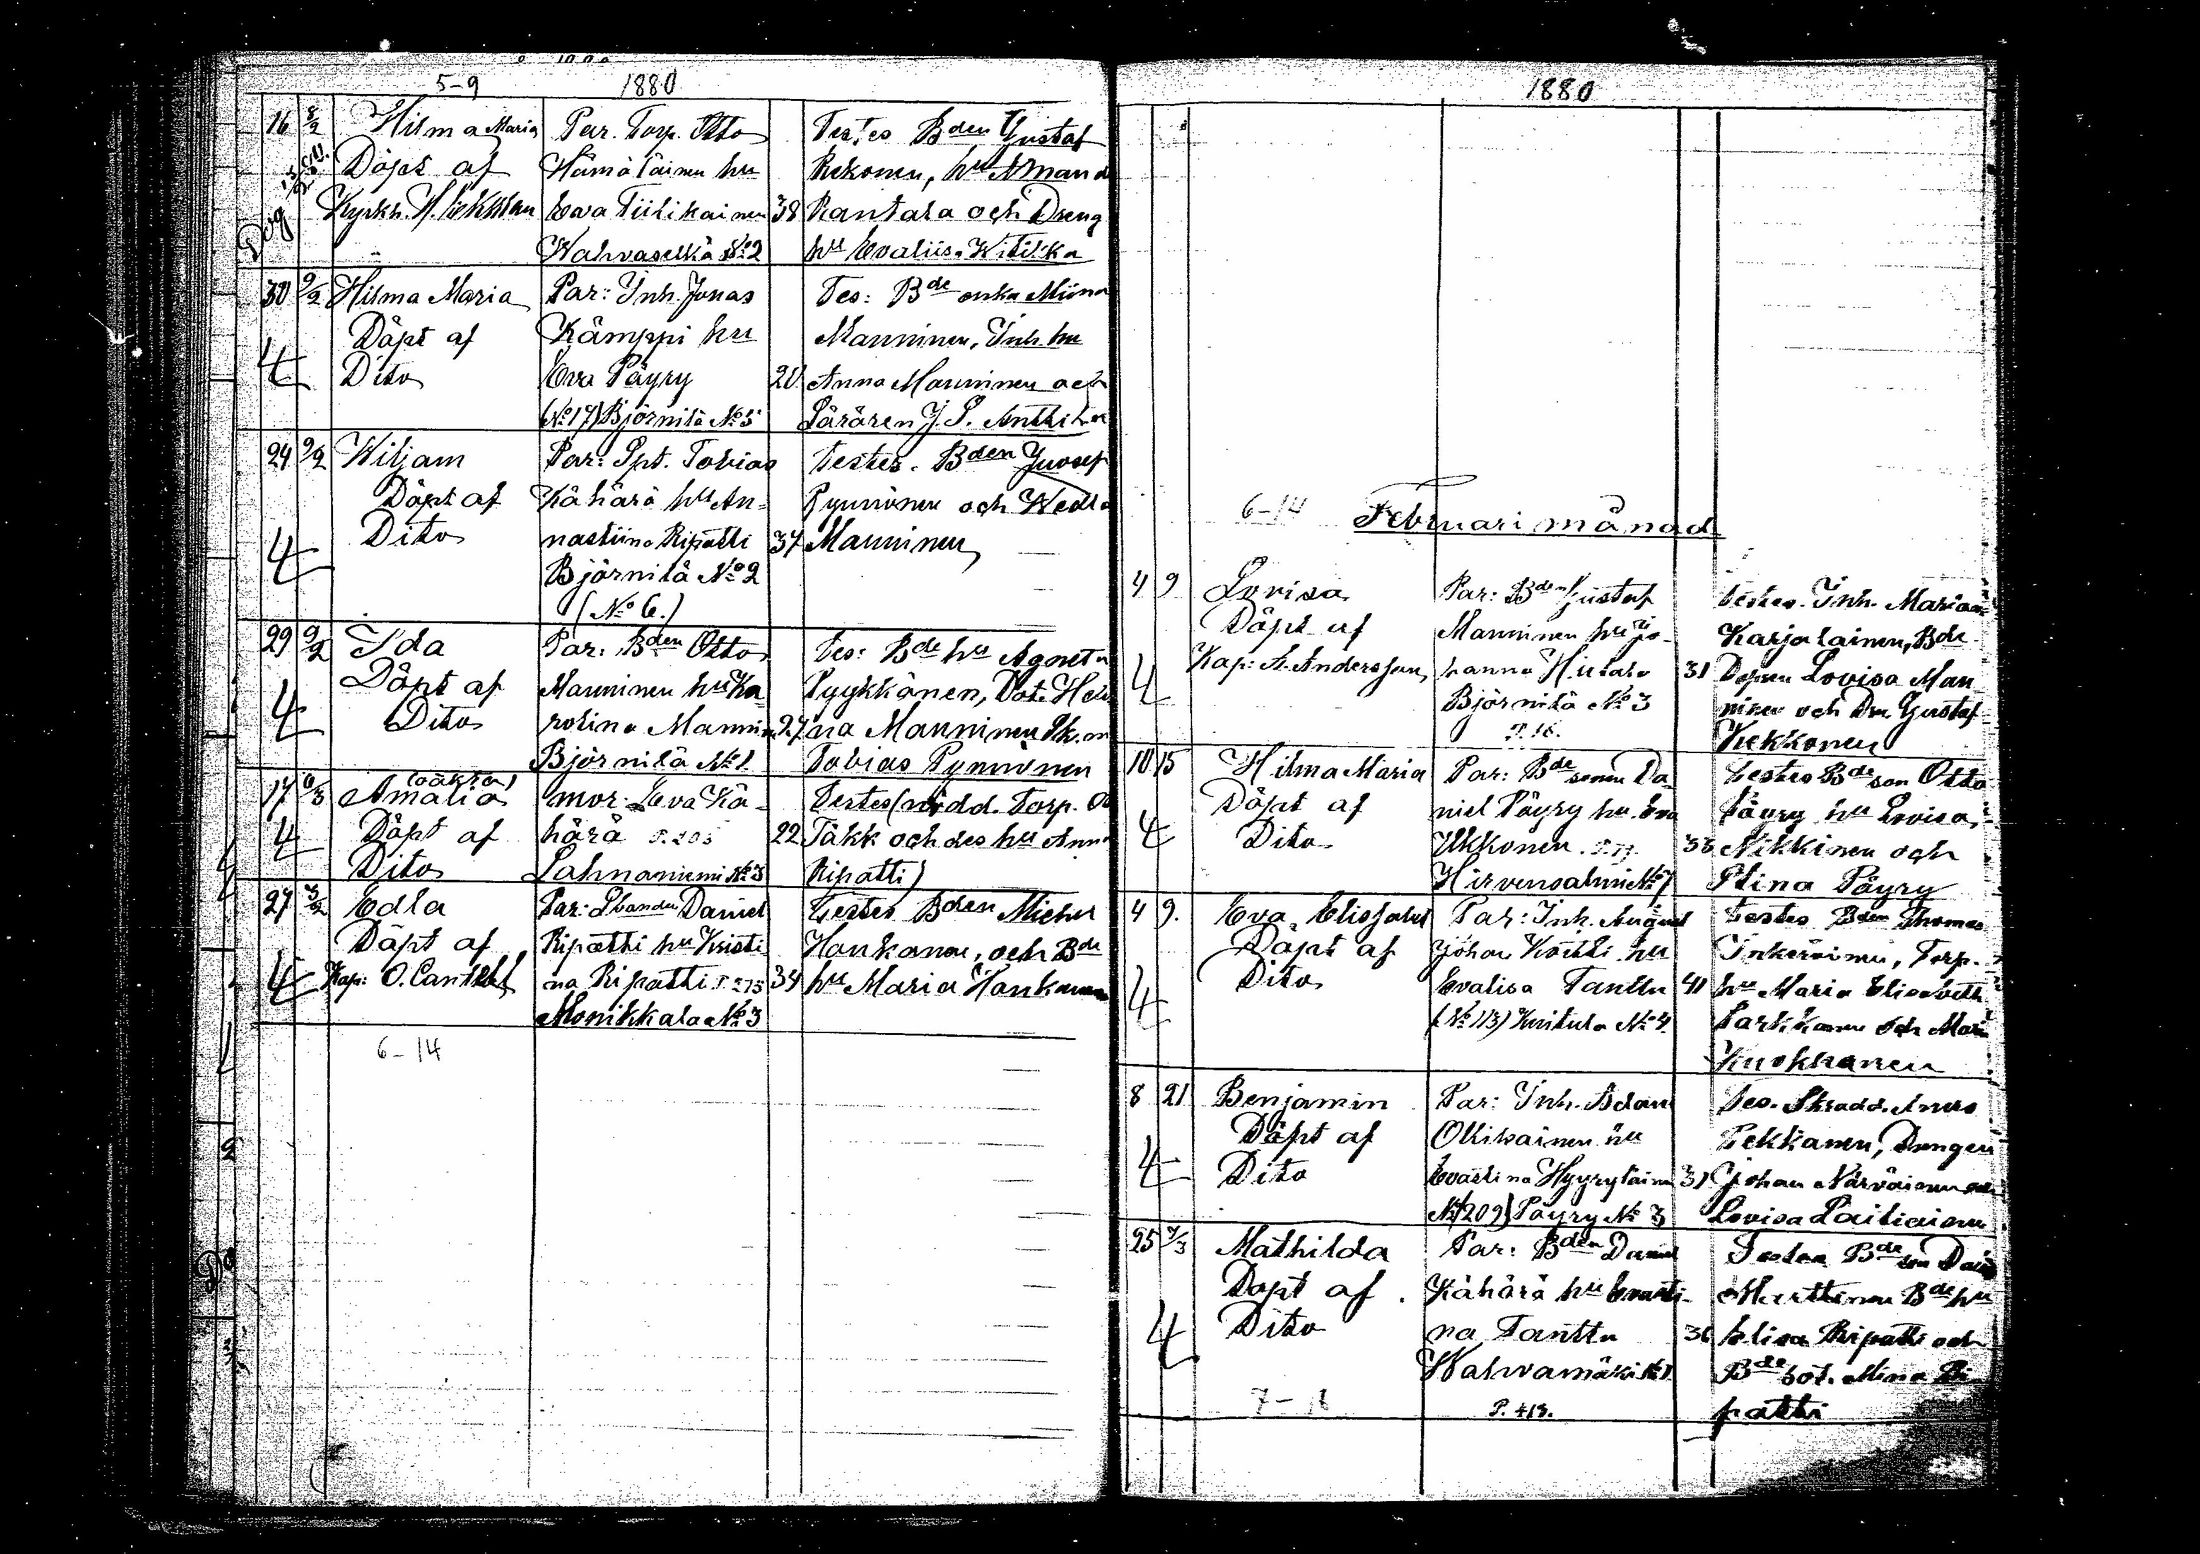 5-9 1880
16 8/2 Hilma Maria Par. Torp. Otto Testes Bden Gustaf
Döpt af Hämäläinen hu Kekonen, hu Amand
Kyrkh. H. Pekkanen Eva Tiilikainen 38 Rantala och Dreng
Wahvaselkä No 2 hu Evaliisa Witikka
30 9/2 Hilma Maria Par: Inh. Jonas Tes: Bde enka Miina
Döpt af Kämppi hu Manninen, Inh. hu
4 Dito Eva Päyry 20 Anna Manninen och
(No 17) Björnilä No 5 Läraren J. P. Anttila
24 9/2 Wiljam Par: Spt. Tobias Testes. Bden Juosef
Döpt af Kähärä hu An- Pynnönen och Hedla
4 Dito nastiina Ripatti 34 Manninen
Björnilä No 2
(No 6.)
29 9/2 Ida Par: Bden Otto Tes: Bde hu Agneta
Döpt af Manninen hu Ka Pyykkänen, Dot. Hele
4 Dito rolina Mannin 27 na Manninen
Björnilä No 1. Tobias Pynnönen
(oäkta)
17 Amalia mor: Eva Kä- Testes (nödd. Torp.
4 Döpt af härä P. 205 22 Täkk och des hu Anna
Dito Lahnaniemi No 3 Ripatti)
27 Edla Par: Daniel Testes Bden Michel
Döpt af Ripatti hu Kristi Hankanen, och Bde
4 Kap: O. Cantell na Ripatti P. 273 34 hu Maria Hankanen
Monikkala No 3
6-14
1880
6-14 Februari månad
4 9 Lovisa Par: Bden Gustaf Testes. Inh. Mariana
Döpt af Manninen hu Jo- Karjalainen, Bde
4 Kap: A. Andersson, hanna Hutale 31 Lovisa Man
Björnilä No 3 ninen och Dn Gustaf
P. 16. Kekkonen
10 15 Hilma Maria Par: Bde sonen Da Testes Bde son Otto
Döpt af niel Päyry hu Eva Päyry hu Lovisa
4 Dito Ukkonen 33 Nikkinen och
Hirvensalmi No 7 Stina Päyry
4 9. Eva Elisabet Par: Inh. August Testes Bden Thomas
Döpt af Johan Kortti hu Inkeröinen, Torp.
4 Dito Evalisa Tanttu 41 hu Maria Elisabeth
(No 113) Kuitula No 4. Parkkanen och Mari
Kuokkanen
8 21 Benjamin Par: Inh. Adam Tes. Skradd. Anders
Döpt af Ollikainen hu Pekkanen, Drengen
4 Dito Evastina Hyyryläinen 31 Johan Närväinen och
No (209) Päyry No 3 Lovisa Laitiainen
25 7/3 Mathilda Par: Bden Daniel Testes Bde son David
Döpt af Kähärä hu Evasti- Marttinen Bde hu
4 Dito na Tanttu 36 Elisa Ripatti och
Wahvamäki No 1 Bde dot. Mina Ri
7- P. 413. patti